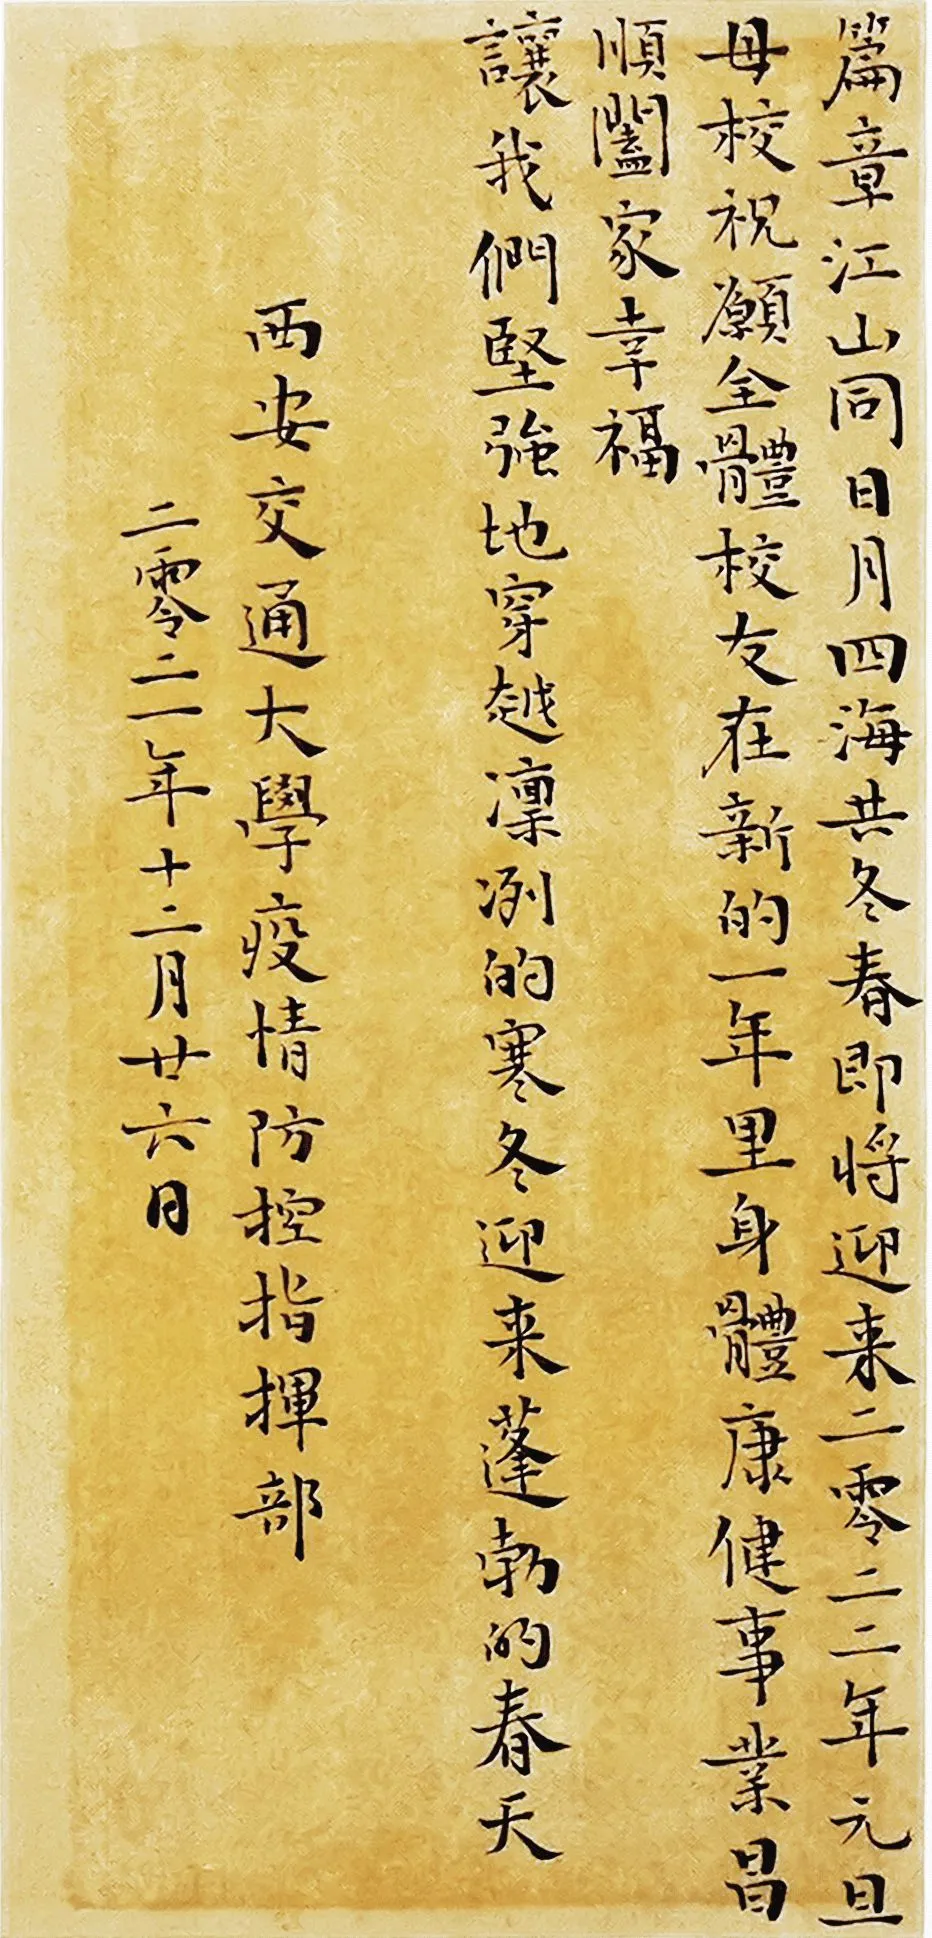 篇章江山同日月四海共冬春即将迎来二零二二年元旦
母校祝願全體校友在新的一年里身體康健事業昌
順闔家幸福
讓我們堅強地穿越凜冽的寒冬迎来蓬勃的春天
西安交通大學疫情防控指揮部
二零二一年十二月廿六日